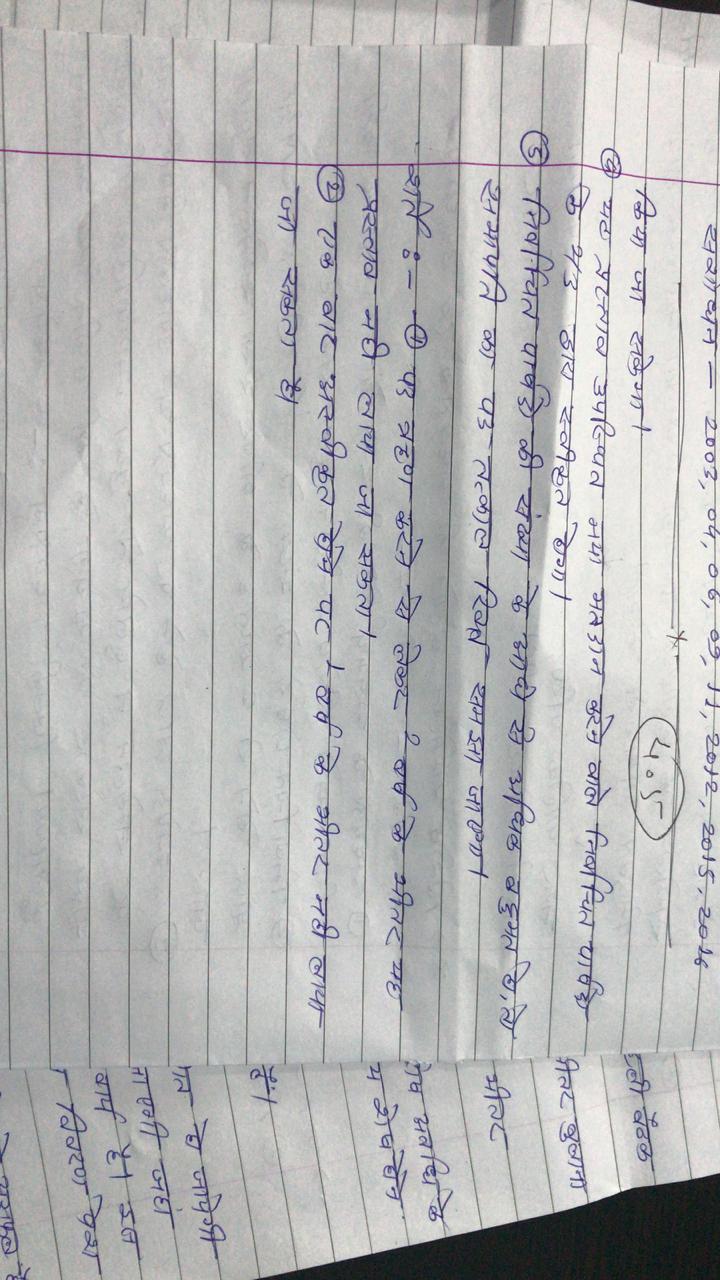 संशोधन - 2003, 04, 06, 09, 11, 2012, 2015, 2016
किया जा सकेगा।
4:05
② यह प्रस्ताव उपस्थित तथा मतदान करने वाले निर्वाचित पार्षदों
के 3/4 द्वारा स्वीकृत होगा।
③ निर्वाचित पार्षदों की संख्या के आधे से अधिक बहुमत हो, तो
सभापति का पद तत्काल रिक्त समझा जाएगा।
शर्ते :- ① पद ग्रहण करने से लेकर 2 वर्ष के भीतर यह
प्रस्ताव नहीं लाया जा सकता।
② एक बार अस्वीकृत होने पर 1 वर्ष के भीतर नहीं लाया
जा सकता है।
बैठक
भीतर बुलाना
भीतर
के
हैं।
जायेगी
जहां
कार्य है। इन